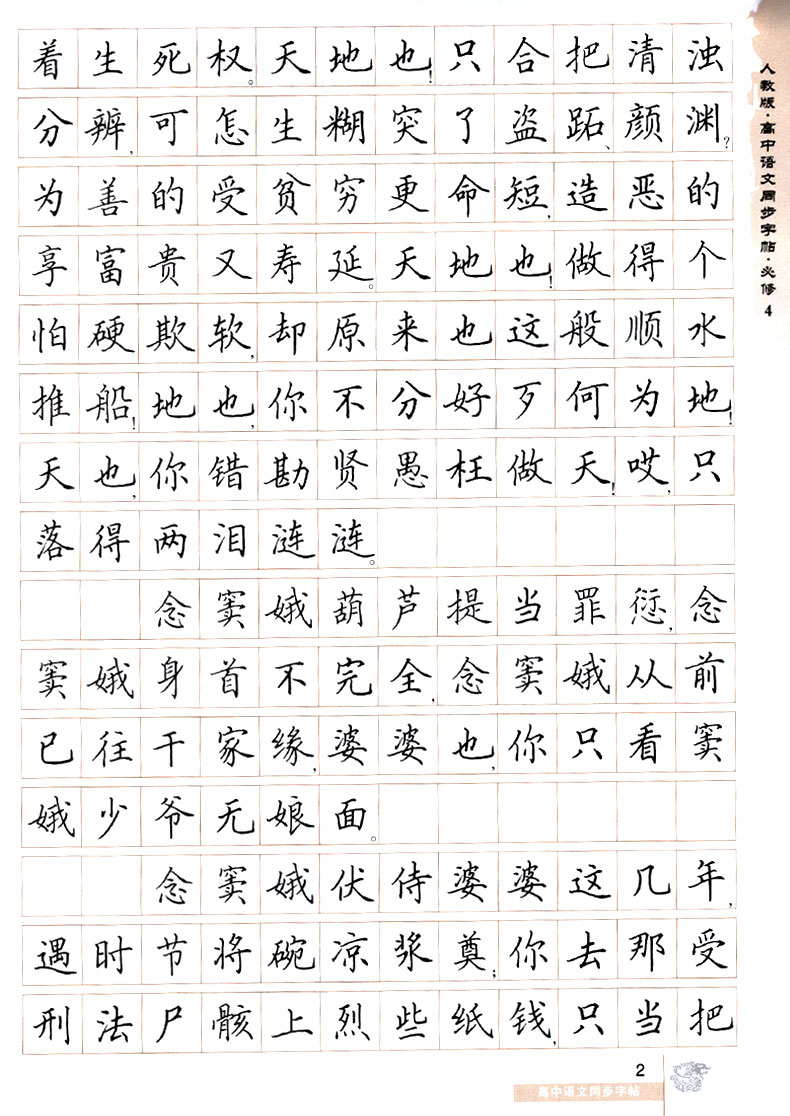 着生死权。天地也！只合把清浊
分辨，可怎生糊突了盗跖、颜渊？
为善的受贫穷更命短，造恶的
享富贵又寿延。天地也！做得个
怕硬欺软，却原来也这般顺水
推船！地也，你不分好歹何为地！
天也，你错勘贤愚枉做天！哎，只
落得两泪涟涟。
念窦娥葫芦提当罪愆，念
窦娥身首不完全，念窦娥从前
已往干家缘，婆婆也，你只看窦
娥少爷无娘面。
念窦娥伏侍婆婆这几年，
遇时节将碗凉浆奠；你去那受
刑法尸骸上烈些纸钱，只当把
人教版·高中语文同步字帖·必修4
2
高中语文同步字帖